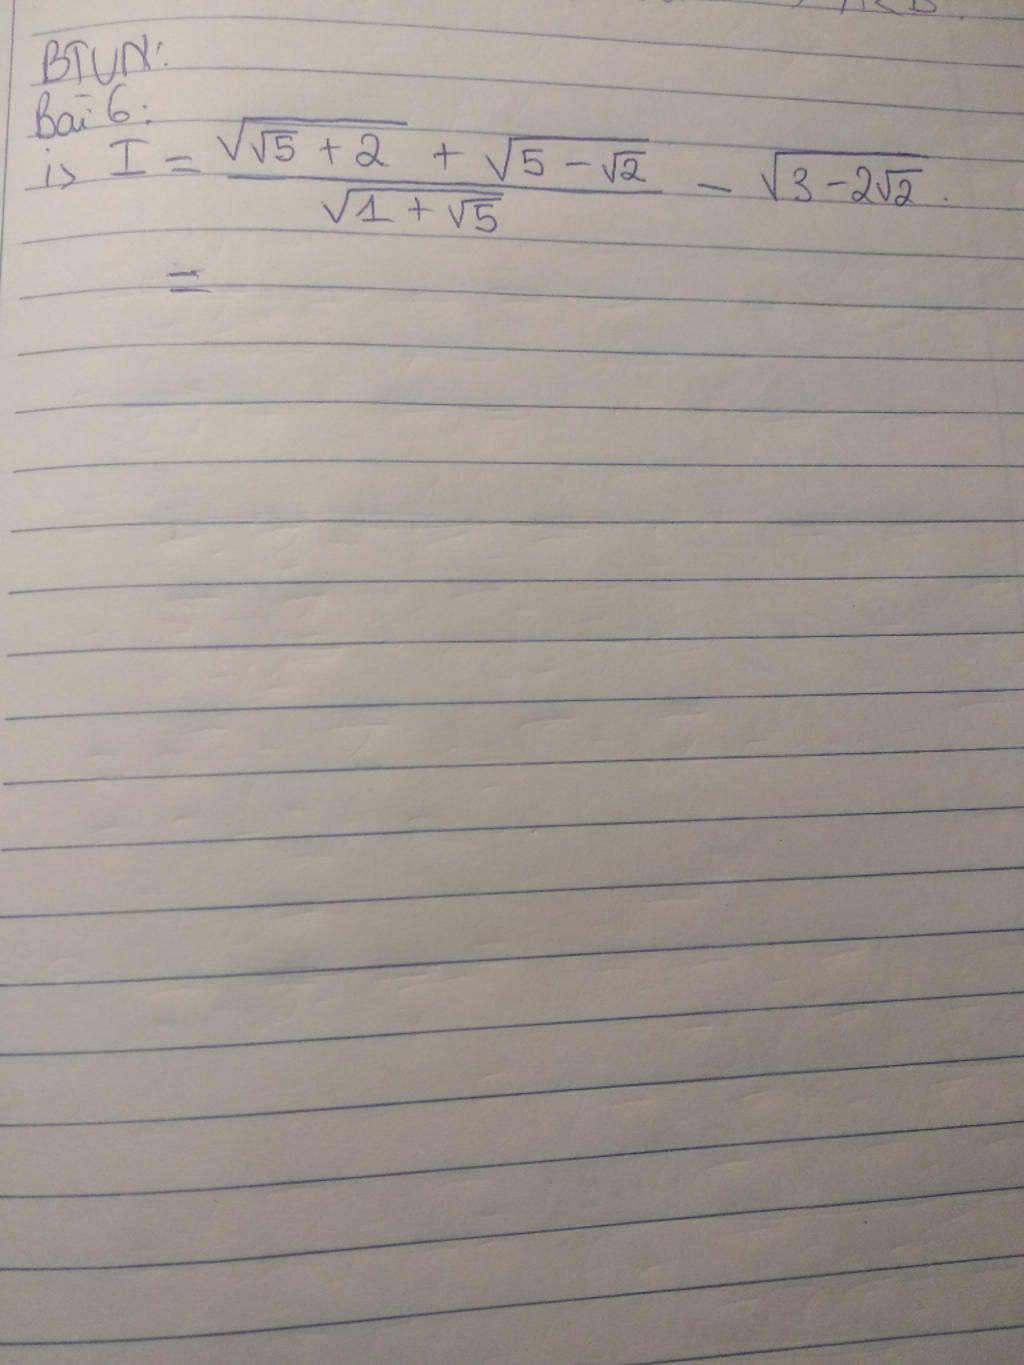 BTVN:
Bài 6:
i> I = \frac{\sqrt{\sqrt{5} + 2} + \sqrt{5 - \sqrt{2}}}{\sqrt{1 + \sqrt{5}}} - \sqrt{3 - 2\sqrt{2}}.
=